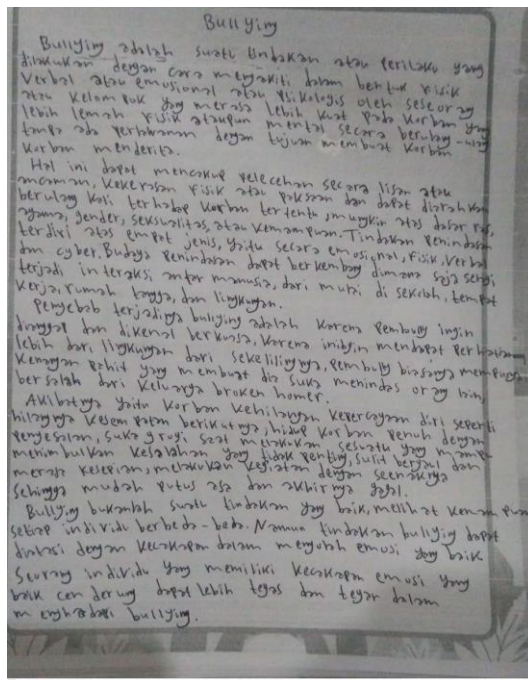 Bullying
Bullying adalah suatu tindakan atau perilaku yang
dilakukan dengan cara menyakiti dalam bentuk fisik
verbal atau emosional atau psikologis oleh seseorang
atau kelompok yang merasa lebih kuat pada korban yang
lebih lemah fisik ataupun mental secara berulang-ulang
tanpa ada perlawanan dengan tujuan membuat korban
korban menderita.
Hal ini dapat mencakup pelecehan secara lisan atau
ancaman, kekerasan fisik atau paksaan dan dapat diarahkan
berulang kali terhadap korban tertentu, mungkin atas dasar ras,
agama, gender, seksualitas, atau kemampuan. Tindakan penindasan
terdiri atas empat jenis, yaitu secara emosional, fisik, verbal
dan cyber. Budaya penindasan dapat berkembang dimana saja
terjadi interaksi antar manusia, dari mulai di sekolah, tempat
kerja, rumah tangga, dan lingkungan.
Penyebab terjadinya buliying adalah karena pembully ingin
dianggap dan dikenal berkuasa, karena ingin mendapat perhatian
lebih dari lingkungan dari sekelilingnya, pembully biasanya mempunyai
kenangan pahit yang membuat dia suka menindas orang lain,
bersalah dari keluarga broken homer.
Akibatnya yaitu korban kehilangan kepercayaan diri seperti
hilangnya kesempatan berikutnya, hidup korban penuh dengan
penyesalan, suka grogi saat melakukan sesuatu yang mampu
menimbulkan kesalahan yang tidak penting, sulit bergaul dan
merasa kesepian, melakukan kegiatan dengan seenaknya
sehingga mudah putus asa dan akhirnya gagal.
Bullying bukanlah suatu tindakan yang baik, melihat kemampuan
setiap individu berbeda-beda. Namun tindakan buliying dapat
diatasi dengan kecakapan dalam mengolah emosi yang baik
Seorang individu yang memiliki kecakapan emosi yang
baik cenderung dapat lebih tegas dan tegar dalam
menghadapi bullying.